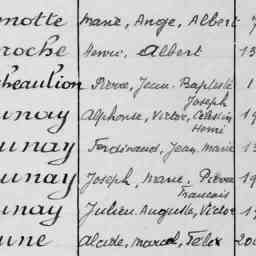 motte Marie, Ange, Albert
roche Henri, Albert 13
heaulion Pierre, Jean-Baptiste 1
Joseph
unay Alphonse, Victor, Célestin 19
Henri
unay Ferdinand, Jean Marie 13
unay Joseph, Marie, Pierre 19
Francois
unay Julien, Auguste, Victor 19
une Alcide, Marcel, Félix 20